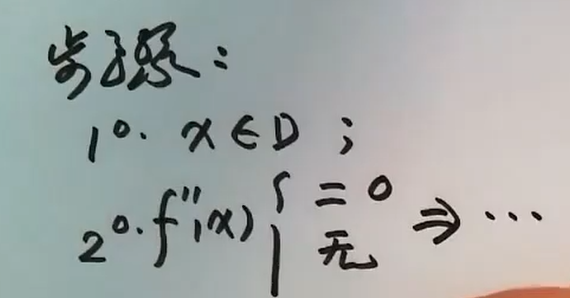 步骤：
1°. x∈D；
2°. f''(x) { = 0 ⇒ …
无